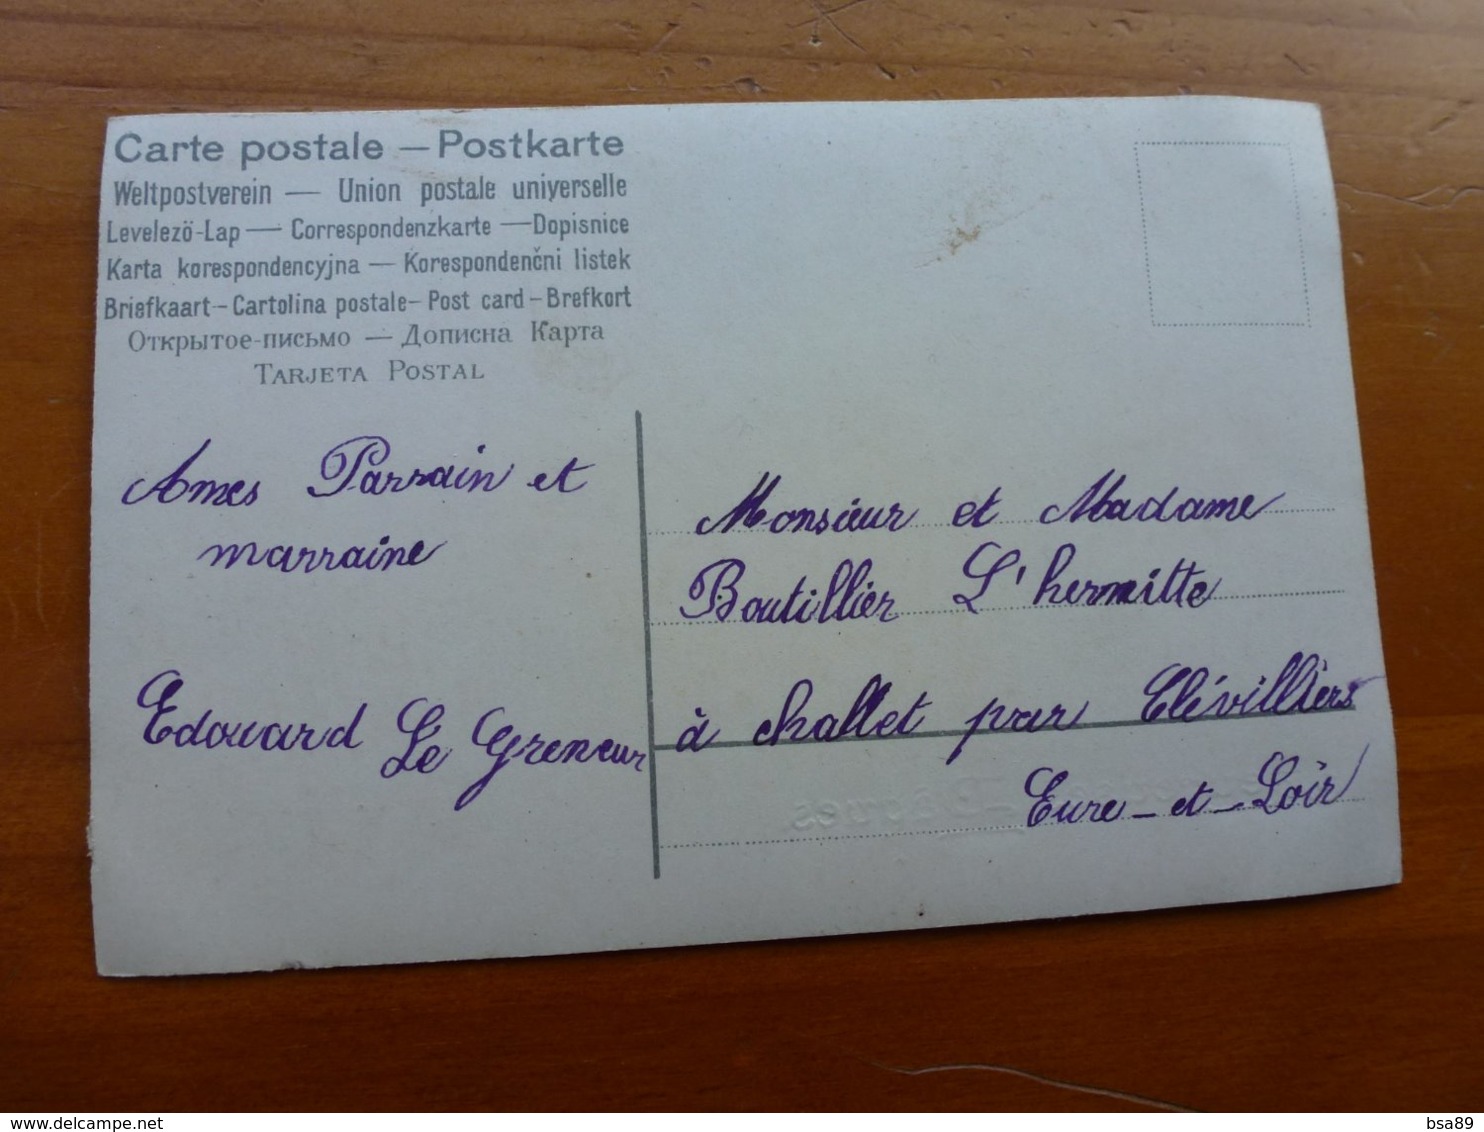 Carte postale — Postkarte
Weltpostverein — Union postale universelle
Levelezö-Lap — Correspondenzkarte — Dopisnice
Karta korespondencyjna — Korespondenčni listek
Briefkaart — Cartolina postale — Post card — Brefkort
Открытое-письмо — Дописна Карта
Tarjeta Postal
Ames Parrain et
marraine
Edouard Le Greneur
Monsieur et Madame
Boutillier L'hermitte
à Challet par Clévilliers
Eure-et-Loir
Delcampe.net
bsa89